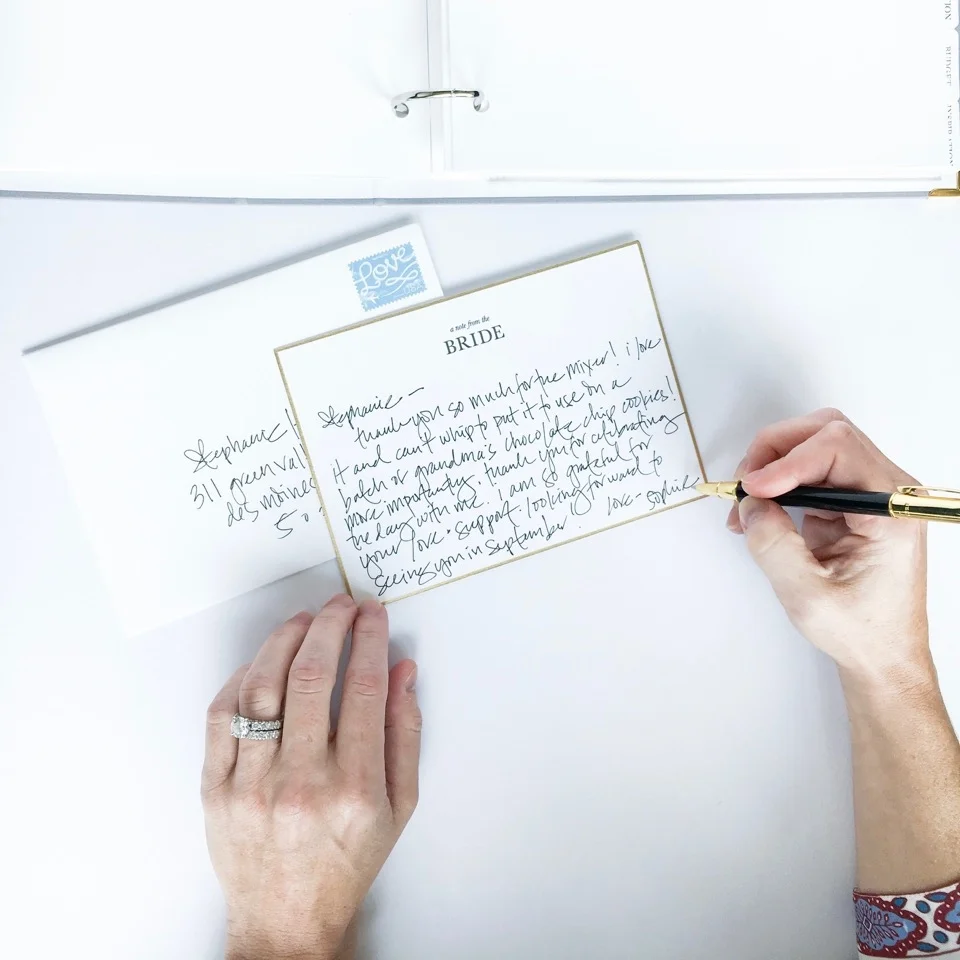 Love
a note from the
BRIDE
Stephanie –
thank you so much for the mixer! i love
it and can't whip to put it to use on a
batch of grandma's chocolate chip cookies!
more importantly, thank you for celebrating
the day with me. I am so grateful for
your love + support. looking forward to
seeing you in September! love – sophie
Stephanie
311 green val
des moines
50
BUDGET